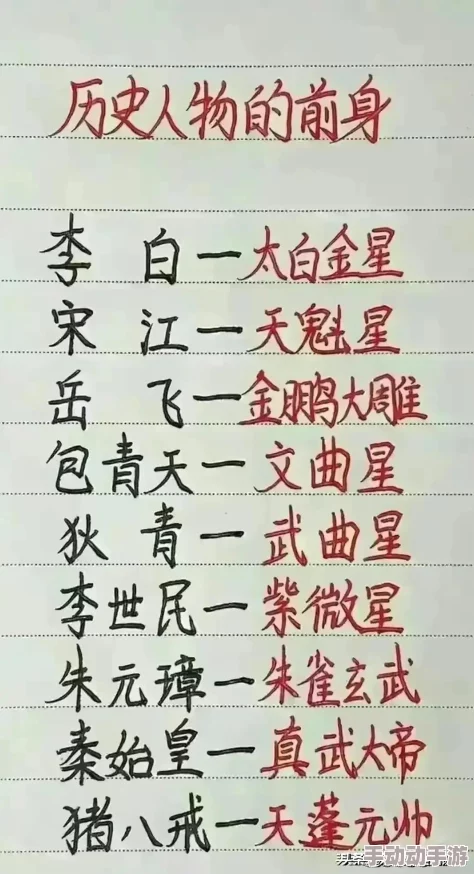 历史人物的前身
李白一太白金星
宋江一天魁星
岳飞一金鹏大雕
包青天一文曲星
狄青一武曲星
李世民一紫微星
朱元璋一朱雀玄武
秦始皇一真武大帝
猪八戒一天蓬元帅
手动动手游